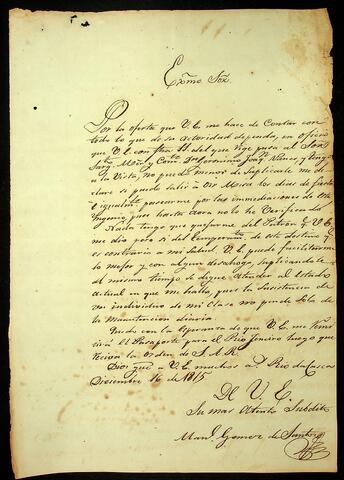 Exmo Sor
Por la oferta que V. E. me hace de Contar con
todo lo que de su autoridad dependa, en oficio
que V. E. con fha 11 del que rige pasa al Sor
Sargto Mor y Comte Dn Geronimo Joaqn Nunes y tengo
a la Vista, no puedo menos de Suplicarle me de
clare si puedo salir à oir Misa los dias de fiesta
è igualmte pasearme por las inmediaciones de este
Ingenio, pues hasta aora no lo he Verificado.
Nada tengo que quejarme del Patron q V. E.
me dio pero si del temperamto de este destino q
es contrario a mi Salud V. E. puede facilitarme
lo mejor y con algun desahogo, suplicandole
al mismo tiempo se digne Atender al Estado
actual en que me hallo, pues la Susistencia de
un individuo de mi Clase no pende Solo de
la Manutencion diaria.
Quedo con la Esperanza de que V. E. me remi
tirà el Pasaporte para el Rio Janeiro luego que
reciva la Orden de S. A. R.
Dios gue a V. E. muchos as Rio da Casca
Diciembre 16 de 1815.
De V. E.
Su mas Atento Subdito
Manl Gomez de Santos